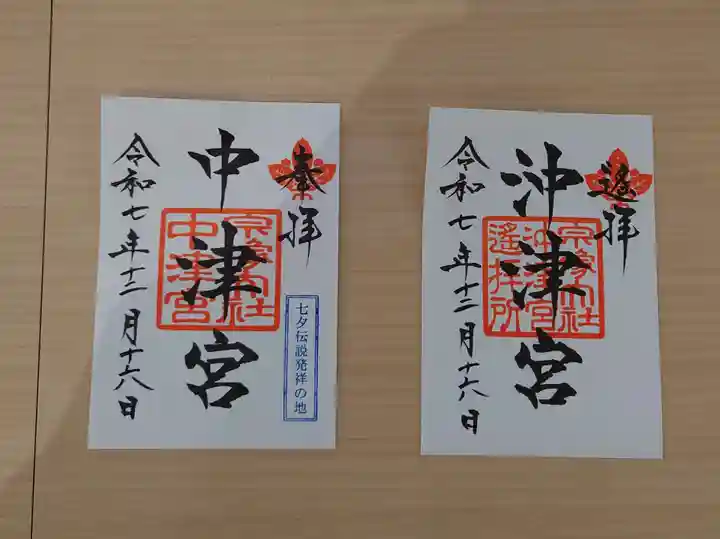 奉拝
中津宮
宗像大社
中津宮
七夕伝説発祥の地
令和七年十二月十六日
遥拝
沖津宮
宗像大社
沖津宮
遙拝所
令和七年十二月十六日